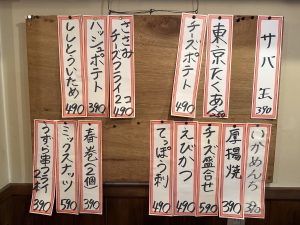 サバ玉
390
東京たくあん
250
チーズポテト
490
ささみ
チーズフライ2コ
490
ハッシュポテト
390
ししとういため
490
いかめんち
390
厚揚焼
390
チーズ盛合せ
590
えびかつ
490
てっぽう刺
490
春巻(2個)
390
ミックスナッツ
590
うずら串フライ
2本
390